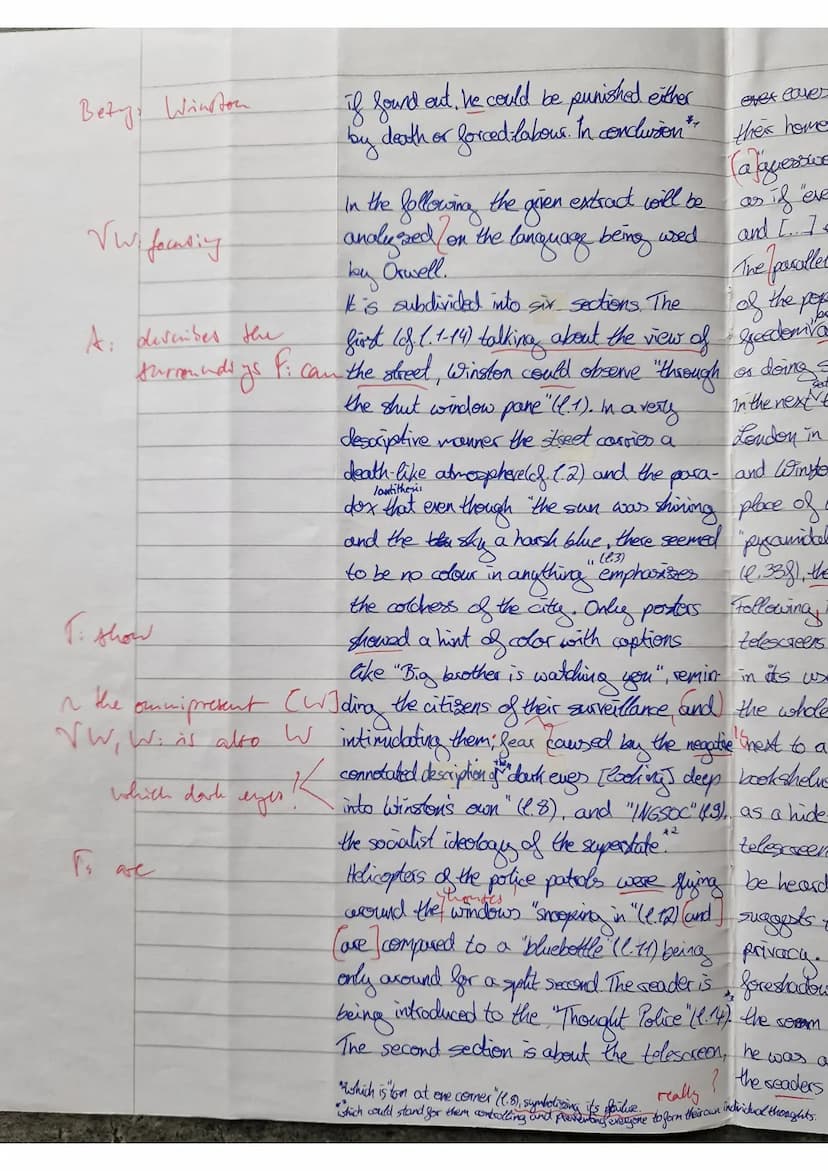 Bezug: Winston
if found out, he could be punished either
by death or forced-labour. In conclusion*1
In the following the given extract will be
VW: focusing
analyzed on the language being used
by Orwell.
It is subdivided into six sections. The
A: describes the
first (cf. l. 1-14) talking about the view of
surroundings T: can
the street, Winston could observe "through
the shut window pane" (l. 1). In a very
descriptive manner the street carries a
death-like atmosphere (cf. l. 2) and the para-
/antithesis
dox that even though "the sun was shining
and the sky a harsh blue, there seemed
to be no colour in anything" (l. 3) emphasizes
the coldness of the city. Only posters
T: show
showed a hint of color with captions
like "Big brother is watching you", remin-
the omnipresent [W]
ding the citizens of their surveillance (and)
VW, W: is also W
intimidating them; fear caused by the negative
connotated description of "dark eyes [looking] deep
which dark eyes?
into Winston's own" (l. 8), and "INGSOC" (l. 9),
the socialist ideology of the superstate.*2
T: are
Helicopters of the police patrols were flying
around the windows "snooping in" (l. 12) (and)
(are) compared to a "bluebottle" (l. 11) being
only around for a split second. The reader is
being introduced to the "Thought Police" (l. 14).
The second section is about the telescreen,
*1 which is "torn at one corner" (l. 8), symbolizing its failure. really?
*2 which could stand for them controlling and preventing everyone to form their own individual thoughts.
ever cover
their home
(a)
as if "eve
and [...]
The parallel
of the pe
freedom
or doing
In the next
London in
and Winsto
place of
"pyramidal
(l. 33f), the
Following,
telescreens
in its
the whole
next to a
bookshelve
as a hide
telescreen
be heard
suggests
privacy.
foreshadow
the room
he was a
the readers